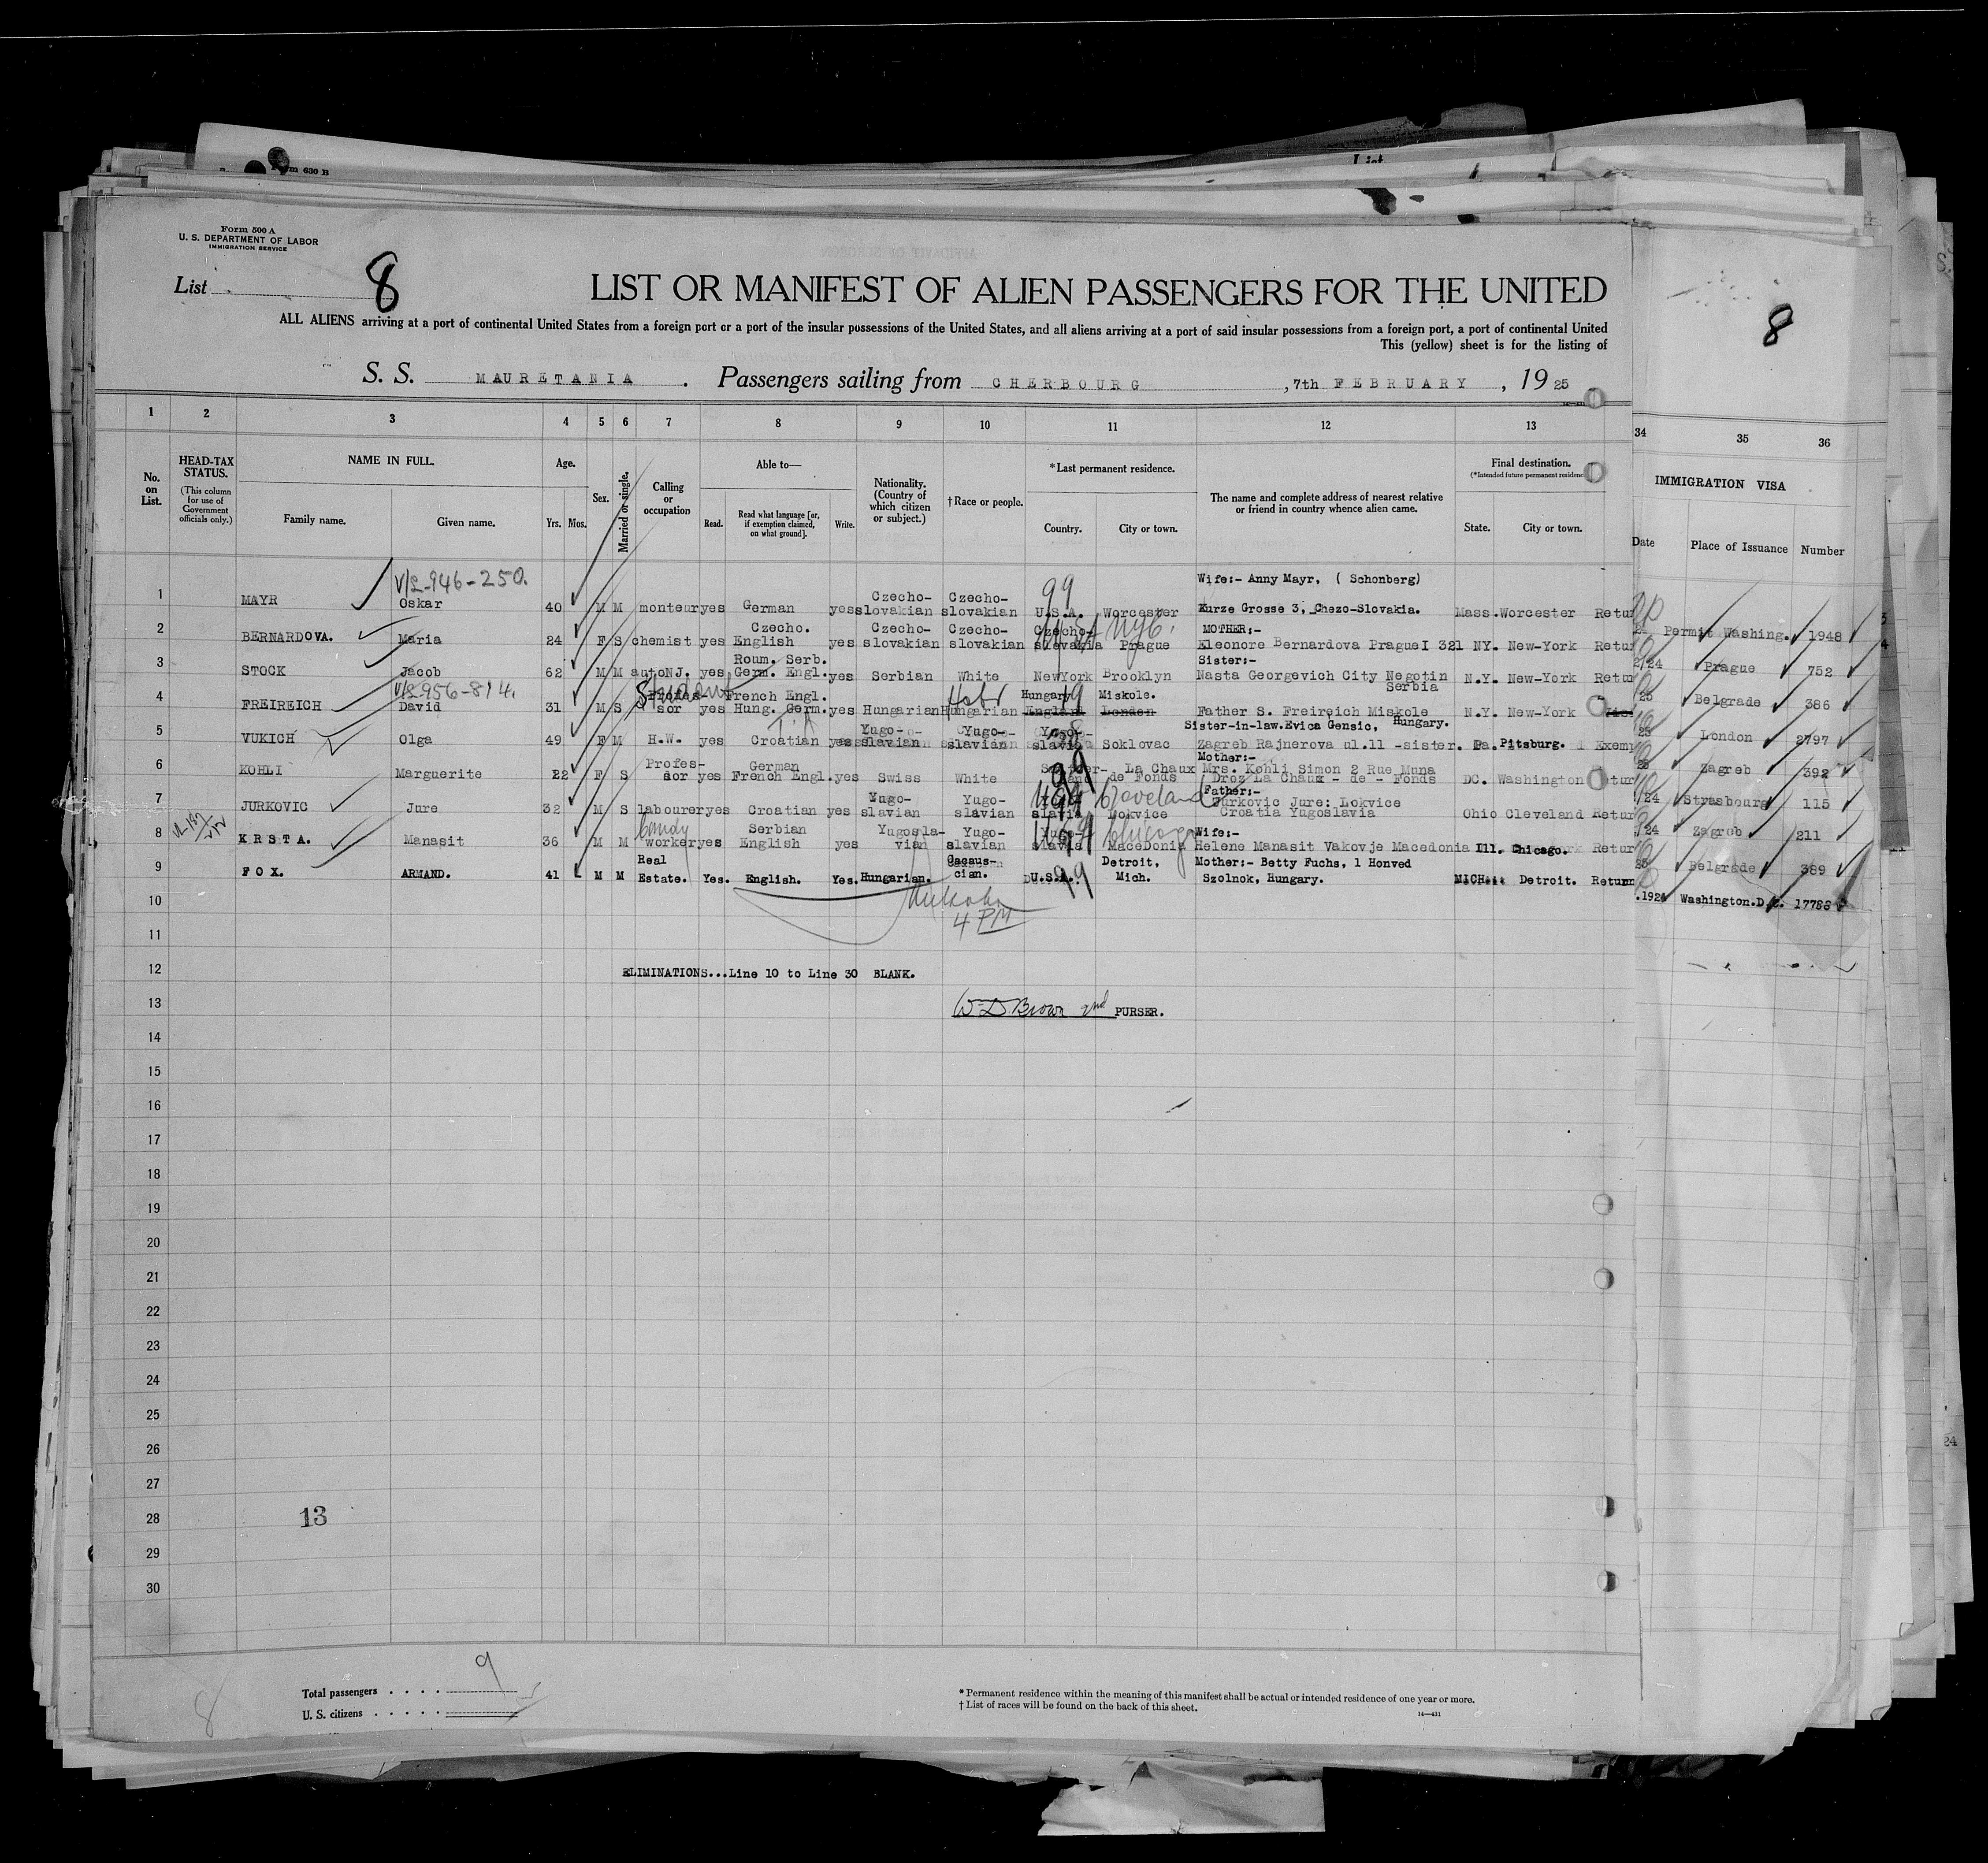 Form 630 B
List
Form 500 A
U. S. DEPARTMENT OF LABOR
IMMIGRATION SERVICE
List 8
LIST OR MANIFEST OF ALIEN PASSENGERS FOR THE UNITED
ALL ALIENS arriving at a port of continental United States from a foreign port or a port of the insular possessions of the United States, and all aliens arriving at a port of said insular possessions from a foreign port, a port of continental United
This (yellow) sheet is for the listing of
8
S. S. MAURETANIA . Passengers sailing from CHERBOURG , 7th FEBRUARY , 19 25
1 2 3 4 5 6 7 8 9 10 11 12 13 34 35 36
No. on List.
HEAD-TAX STATUS.
(This column for use of Government officials only.)
NAME IN FULL.
Family name. Given name.
Age.
Yrs. Mos.
Sex.
Married or single.
Calling or occupation
Able to—
Read. Read what language [or, if exemption claimed, on what ground]. Write.
Nationality. (Country of which citizen or subject.)
†Race or people.
*Last permanent residence.
Country. City or town.
The name and complete address of nearest relative or friend in country whence alien came.
Final destination.
(*Intended future permanent residence
State. City or town.
IMMIGRATION VISA
Date Place of Issuance Number
V/L-946-250. 99 Wife:- Anny Mayr, ( Schonberg)
1 MAYR Oskar 40 M M monteur yes German yes Czecho-slovakian Czecho-slovakian U.S.A. Worcester Kurze Grosse 3, Chezo-Slovakia. Mass. Worcester Retur
Permit Washing. 1948
2 BERNARDOVA. Maria 24 F S chemist yes Czecho. English yes Czecho-slovakian Czecho-slovakian Czecho-slovakia Prague MOTHER;- Eleonore Bernardova Prague I 321 NY. New-York Retur
/24 Prague 752
3 STOCK Jacob 62 M M auto NJ. yes Roum. Serb. Germ. Engl. yes Serbian White NewYork Brooklyn Sister:- Nasta Georgevich City Negotin Serbia N.Y. New-York Retur
25 Belgrade 386
V/L956-814.
4 FREIREICH David 31 M S Student Profes-sor yes French Engl. Hung. Germ. yes Hungarian Hebr Hungarian Hungary England Miskole. London Father S. Freireich Miskole Hungary. N.Y. New-York
London 2797
5 VUKICH Olga 49 F M H.W. yes Croatian yes Yugo-slavian Yugo-slavian Yugo-slavia Soklovac Sister-in-law.Evica Gensic, Zagreb Rajnerova ul.11 -sister. Pa. Pitsburg. Exem
25 Zagreb 392
6 KOHLI Marguerite 22 F S Profes-sor yes German French Engl. yes Swiss White 99 La Chaux de Fonds Mother:- Mrs. Kohli Simon 2 Rue Muna Droz La Chaux - de - Fonds DC. Washington etur
/24 Strasbourg 115
7 JURKOVIC Jure 32 M S labourer yes Croatian yes Yugo-slavian Yugo-slavian slavia Cleveland Lokvice Father:- Jurkovic Jure: Lokvice Croatia Yugoslavia Ohio Cleveland Retur
/24 Zagreb 211
8 KRSTA. Manasit 36 M M Candy worker yes Serbian English yes Yugosla-vian Yugo-slavian Yugo-slavia Chicago Macedonia Wife:- Helene Manasit Vakovje Macedonia Ill. Chicago. Retur
25 Belgrade 389
9 FOX. ARMAND. 41 M M Real Estate. Yes. English. Yes. Hungarian. Cacaus-cian. U.S.A. 99 Detroit, Mich. Mother:- Betty Fuchs, 1 Honved Szolnok, Hungary. MICH. Detroit. Return
.1924 Washington.D.C. 17786
10
4 PM
11
12 ELIMINATIONS...Line 10 to Line 30 BLANK.
13 W D Brown 2nd PURSER.
14
15
16
17
18
19
20
21
22
23
24
25
26
27
28 13
29
30
Total passengers . . . . 9
U. S. citizens . . . . .
8
* Permanent residence within the meaning of this manifest shall be actual or intended residence of one year or more.
† List of races will be found on the back of this sheet.
14—431